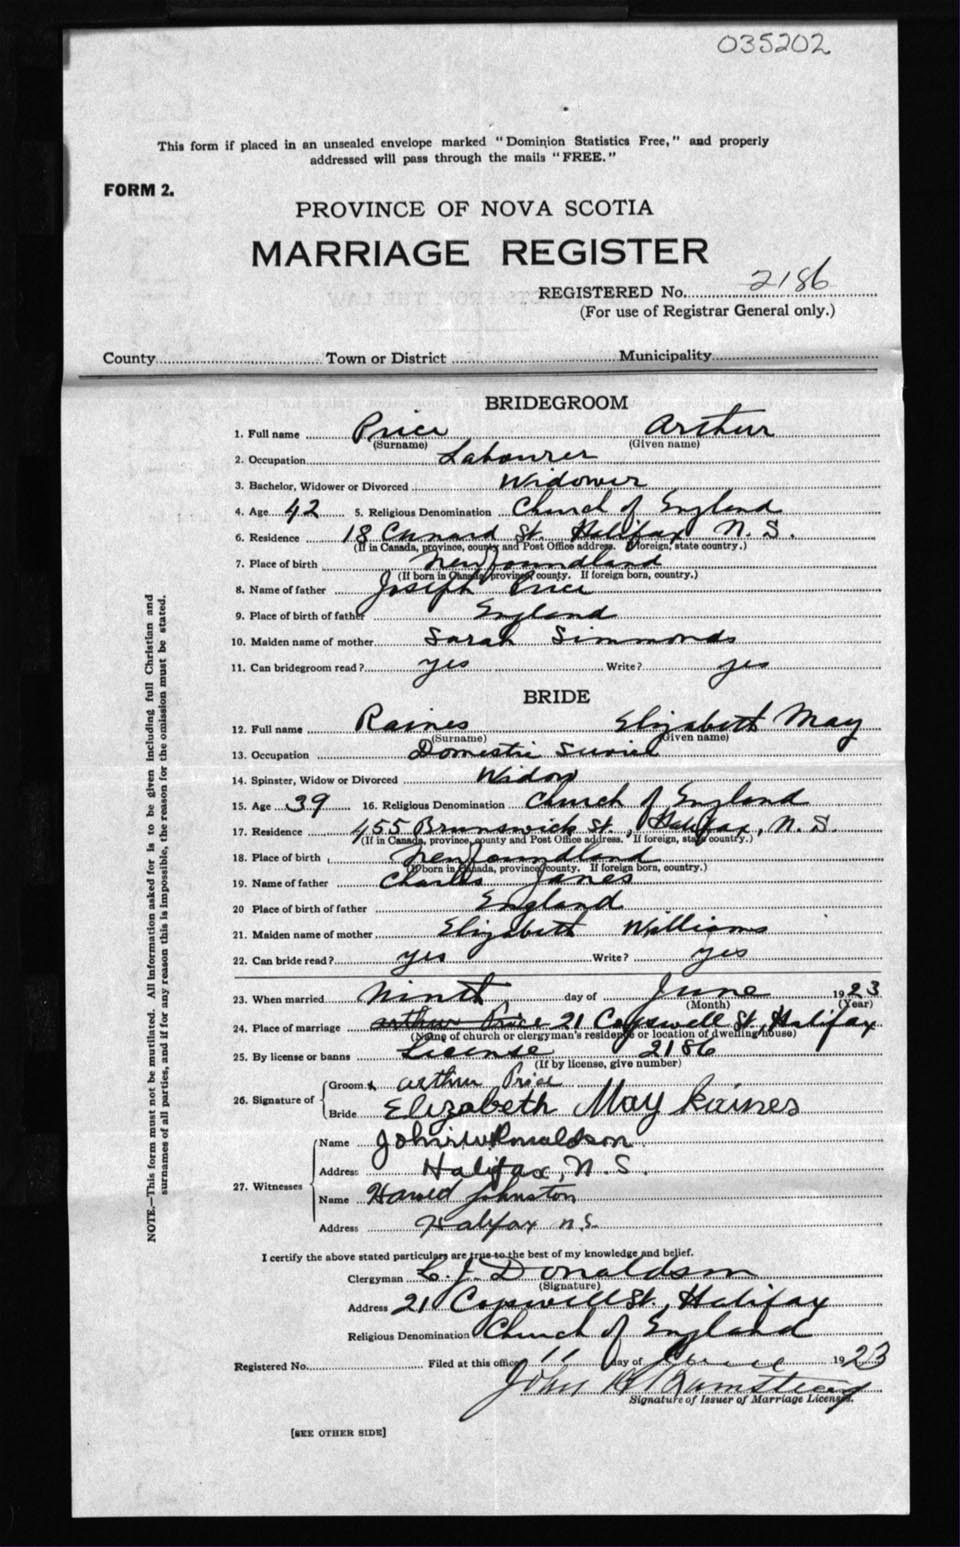 035202
This form if placed in an unsealed envelope marked "Dominion Statistics Free," and properly
addressed will pass through the mails "FREE."
FORM 2.
PROVINCE OF NOVA SCOTIA
MARRIAGE REGISTER
REGISTERED No. 2186
(For use of Registrar General only.)
County Town or District Municipality
BRIDEGROOM
1. Full name Price Arthur
(Surname) (Given name)
2. Occupation Labourer
3. Bachelor, Widower or Divorced Widower
4. Age 42 5. Religious Denomination Church of England
6. Residence 18 Cunard St. Halifax N. S.
(If in Canada, province, county and Post Office address. If foreign, state country.)
7. Place of birth Newfoundland
(If born in Canada, province, county. If foreign born, country.)
8. Name of father Joseph Price
9. Place of birth of father England
10. Maiden name of mother Sarah Simmonds
11. Can bridegroom read? yes Write? yes
BRIDE
12. Full name Raines Elizabeth May
(Surname) (Given name)
13. Occupation Domestic Service
14. Spinster, Widow or Divorced Widow
15. Age 39 16. Religious Denomination Church of England
17. Residence 455 Brunswick St., Halifax, N. S.
(If in Canada, province, county and Post Office address. If foreign, state country.)
18. Place of birth Newfoundland
(If born in Canada, province, county. If foreign born, country.)
19. Name of father Charles Janes
20 Place of birth of father England
21. Maiden name of mother Elizabeth Williams
22. Can bride read? yes Write? yes
23. When married Ninth day of June 1923
(Month) (Year)
24. Place of marriage Arthur Price 21 Cogswell St., Halifax
(Name of church or clergyman's residence or location of dwelling house)
25. By license or banns License 2186
(If by license, give number)
26. Signature of Groom x Arthur Price
Bride Elizabeth May Raines
27. Witnesses Name John W Donaldson
Address Halifax, N. S.
Name Johnston
Address Halifax N.S.
I certify the above stated particulars are true to the best of my knowledge and belief.
Clergyman L. J. Donaldson
(Signature)
Address 21 Cogswell St., Halifax
Religious Denomination Church of England
Registered No. Filed at this office 11 day of June 1923
John Armstrong
Signature of Issuer of Marriage Licenses.
[SEE OTHER SIDE]
NOTE.—This form must not be mutilated. All information asked for is to be given including full Christian and
surnames of all parties, and if for any reason this is impossible, the reason for the omission must be stated.